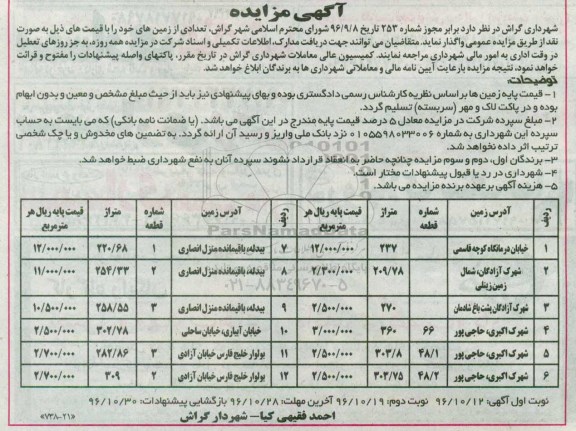 آگهی مزایده
شهرداری گراش در نظر دارد برابر مجوز شماره ۲۵۳ تاریخ ۹۶/۹/۸ شورای محترم اسلامی شهر گراش، تعدادی از زمین های خود را با قیمت های ذیل به صورت
نقد از طریق مزایده عمومی واگذار نماید. متقاضیان می توانند جهت دریافت مدارک، اطلاعات تکمیلی و اسناد شرکت در مزایده همه روزه، به جز روزهای تعطیل
در وقت اداری به امور مالی شهرداری مراجعه نمایند. کمیسیون عالی معاملات شهرداری گراش در تاریخ مقرر، پاکتهای واصله پیشنهادات را مفتوح و قرائت
خواهد نمود، نتیجه مزایده با رعایت آیین نامه مالی و معاملاتی شهرداری ها به برندگان ابلاغ خواهد شد.
توضیحات:
۱- قیمت پایه زمین ها بر اساس نظریه کارشناس رسمی دادگستری بوده و بهای پیشنهادی نیز باید از حیث مبلغ مشخص و معین و بدون ابهام
بوده و در پاکت لاک و مهر (سربسته) تسلیم گردد.
۲- مبلغ سپرده شرکت در مزایده معادل ۵ درصد قیمت پایه مندرج در این آگهی می باشد. (یا ضمانت نامه بانکی) که می بایست به حساب
سپرده این شهرداری به شماره ۰۱۰۵۵۹۸۰۲۳۰۰۶ نزد بانک ملی واریز و رسید آن ارائه گردد. به تضمین های مخدوش و یا چک شخصی
ترتیب اثر داده نخواهد شد.
۳- برندگان اول، دوم و سوم مزایده چنانچه حاضر به انعقاد قرارداد نشوند سپرده آنان به نفع شهرداری ضبط خواهد شد.
۴- شهرداری در رد یا قبول پیشنهادات مختار است.
۵- هزینه آگهی بر عهده برنده مزایده می باشد.
ردیف آدرس زمین شماره قطعه متراژ قیمت پایه ریال هر مترمربع ردیف آدرس زمین شماره قطعه متراژ قیمت پایه ریال هر مترمربع
۱ خیابان درمانگاه کوچه قاسمی ۲۳۷ ۱۲/۰۰۰/۰۰۰ ۷ بیدله، باقیمانده منزل انصاری ۱ ۲۲۰/۶۸ ۱۲/۰۰۰/۰۰۰
۲ شهرک آزادگان، شمال زمین زینلی ۲۰۹/۷۸ ۲/۳۰۰/۰۰۰ ۸ بیدله، باقیمانده منزل انصاری ۲ ۲۵۴/۳۳ ۱۱/۰۰۰/۰۰۰
۳ شهرک آزادگان پشت باغ شادمان ۲۷۰ ۲/۵۰۰/۰۰۰ ۹ بیدله، باقیمانده منزل انصاری ۳ ۲۵۸/۵۵ ۱۰/۵۰۰/۰۰۰
۴ شهرک اکبری، حاجی پور ۶۶ ۳۶۰ ۳/۰۰۰/۰۰۰ ۱۰ خیابان آبیاری، خیابان ساحلی ۳۰۲/۷۸ ۲/۵۰۰/۰۰۰
۵ شهرک اکبری، حاجی پور ۴۸/۱ ۳۰۳/۸ ۲/۵۰۰/۰۰۰ ۱۱ بولوار خلیج فارس خیابان آزادی ۳ ۲۸۲/۸۶ ۲/۷۰۰/۰۰۰
۶ شهرک اکبری، حاجی پور ۴۸/۲ ۳۰۳/۷۵ ۲/۵۰۰/۰۰۰ ۱۲ بولوار خلیج فارس خیابان آزادی ۲ ۳۰۹ ۲/۷۰۰/۰۰۰
نوبت اول آگهی: ۹۶/۱۰/۱۲ نوبت دوم: ۹۶/۱۰/۱۹ آخرین مهلت: ۹۶/۱۰/۲۸ بازگشایی پیشنهادات: ۹۶/۱۰/۳۰
احمد فقیهی کیا - شهردار گراش
«۷۳۸-۲۱»
ParsNamadData
۰۲۱-۸۸۳۴۹۶۷۰-۵